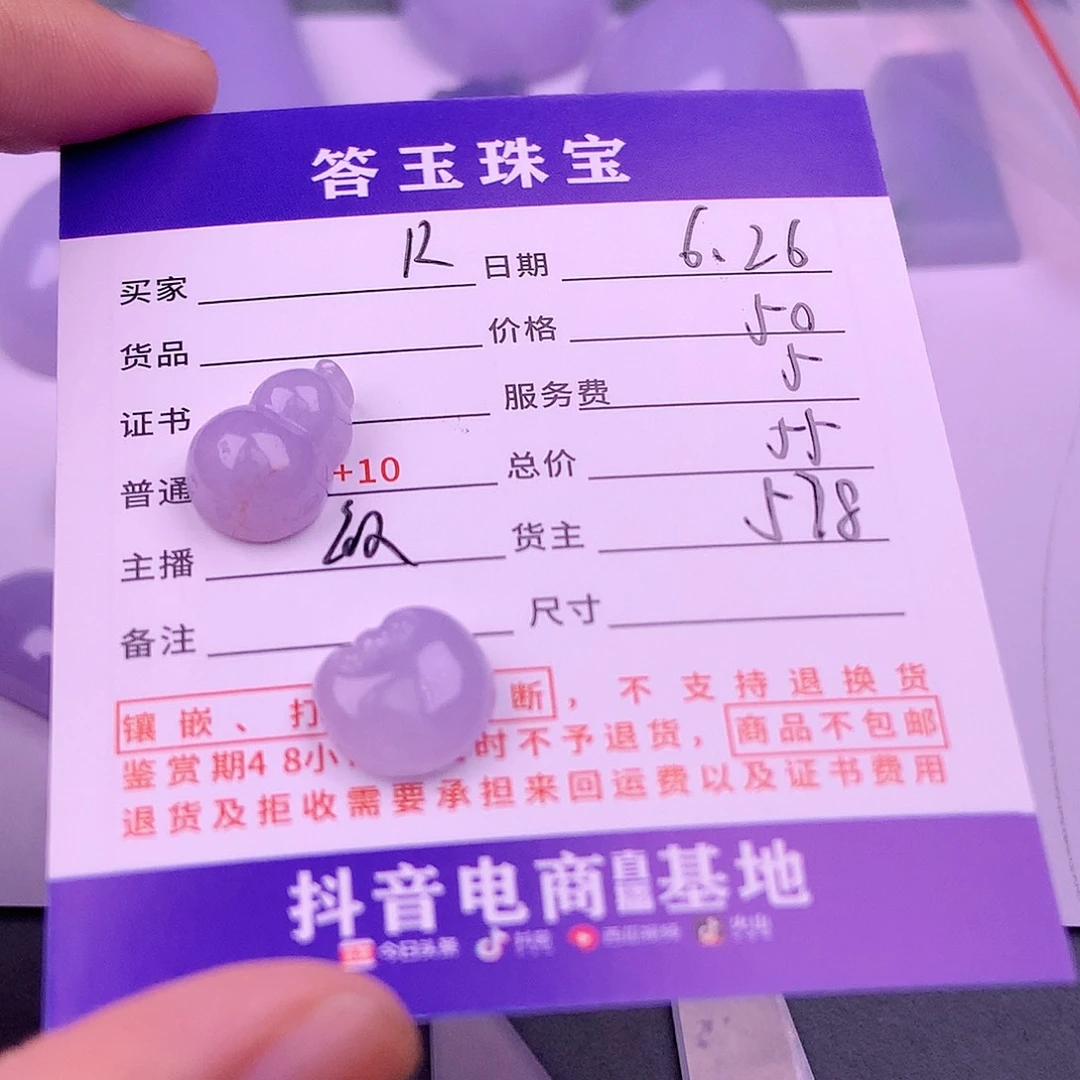 答玉珠宝
买家 R 日期 6.26
货品 价格 50
证书 服务费 5
普通 +10 总价 55
主播 货主 578
备注 尺寸
镶嵌、打 断，不支持退换货
鉴赏期48小 时不予退货，商品不包邮
退货及拒收需要承担来回运费以及证书费用
抖音电商直播基地
今日头条 抖音 西瓜视频